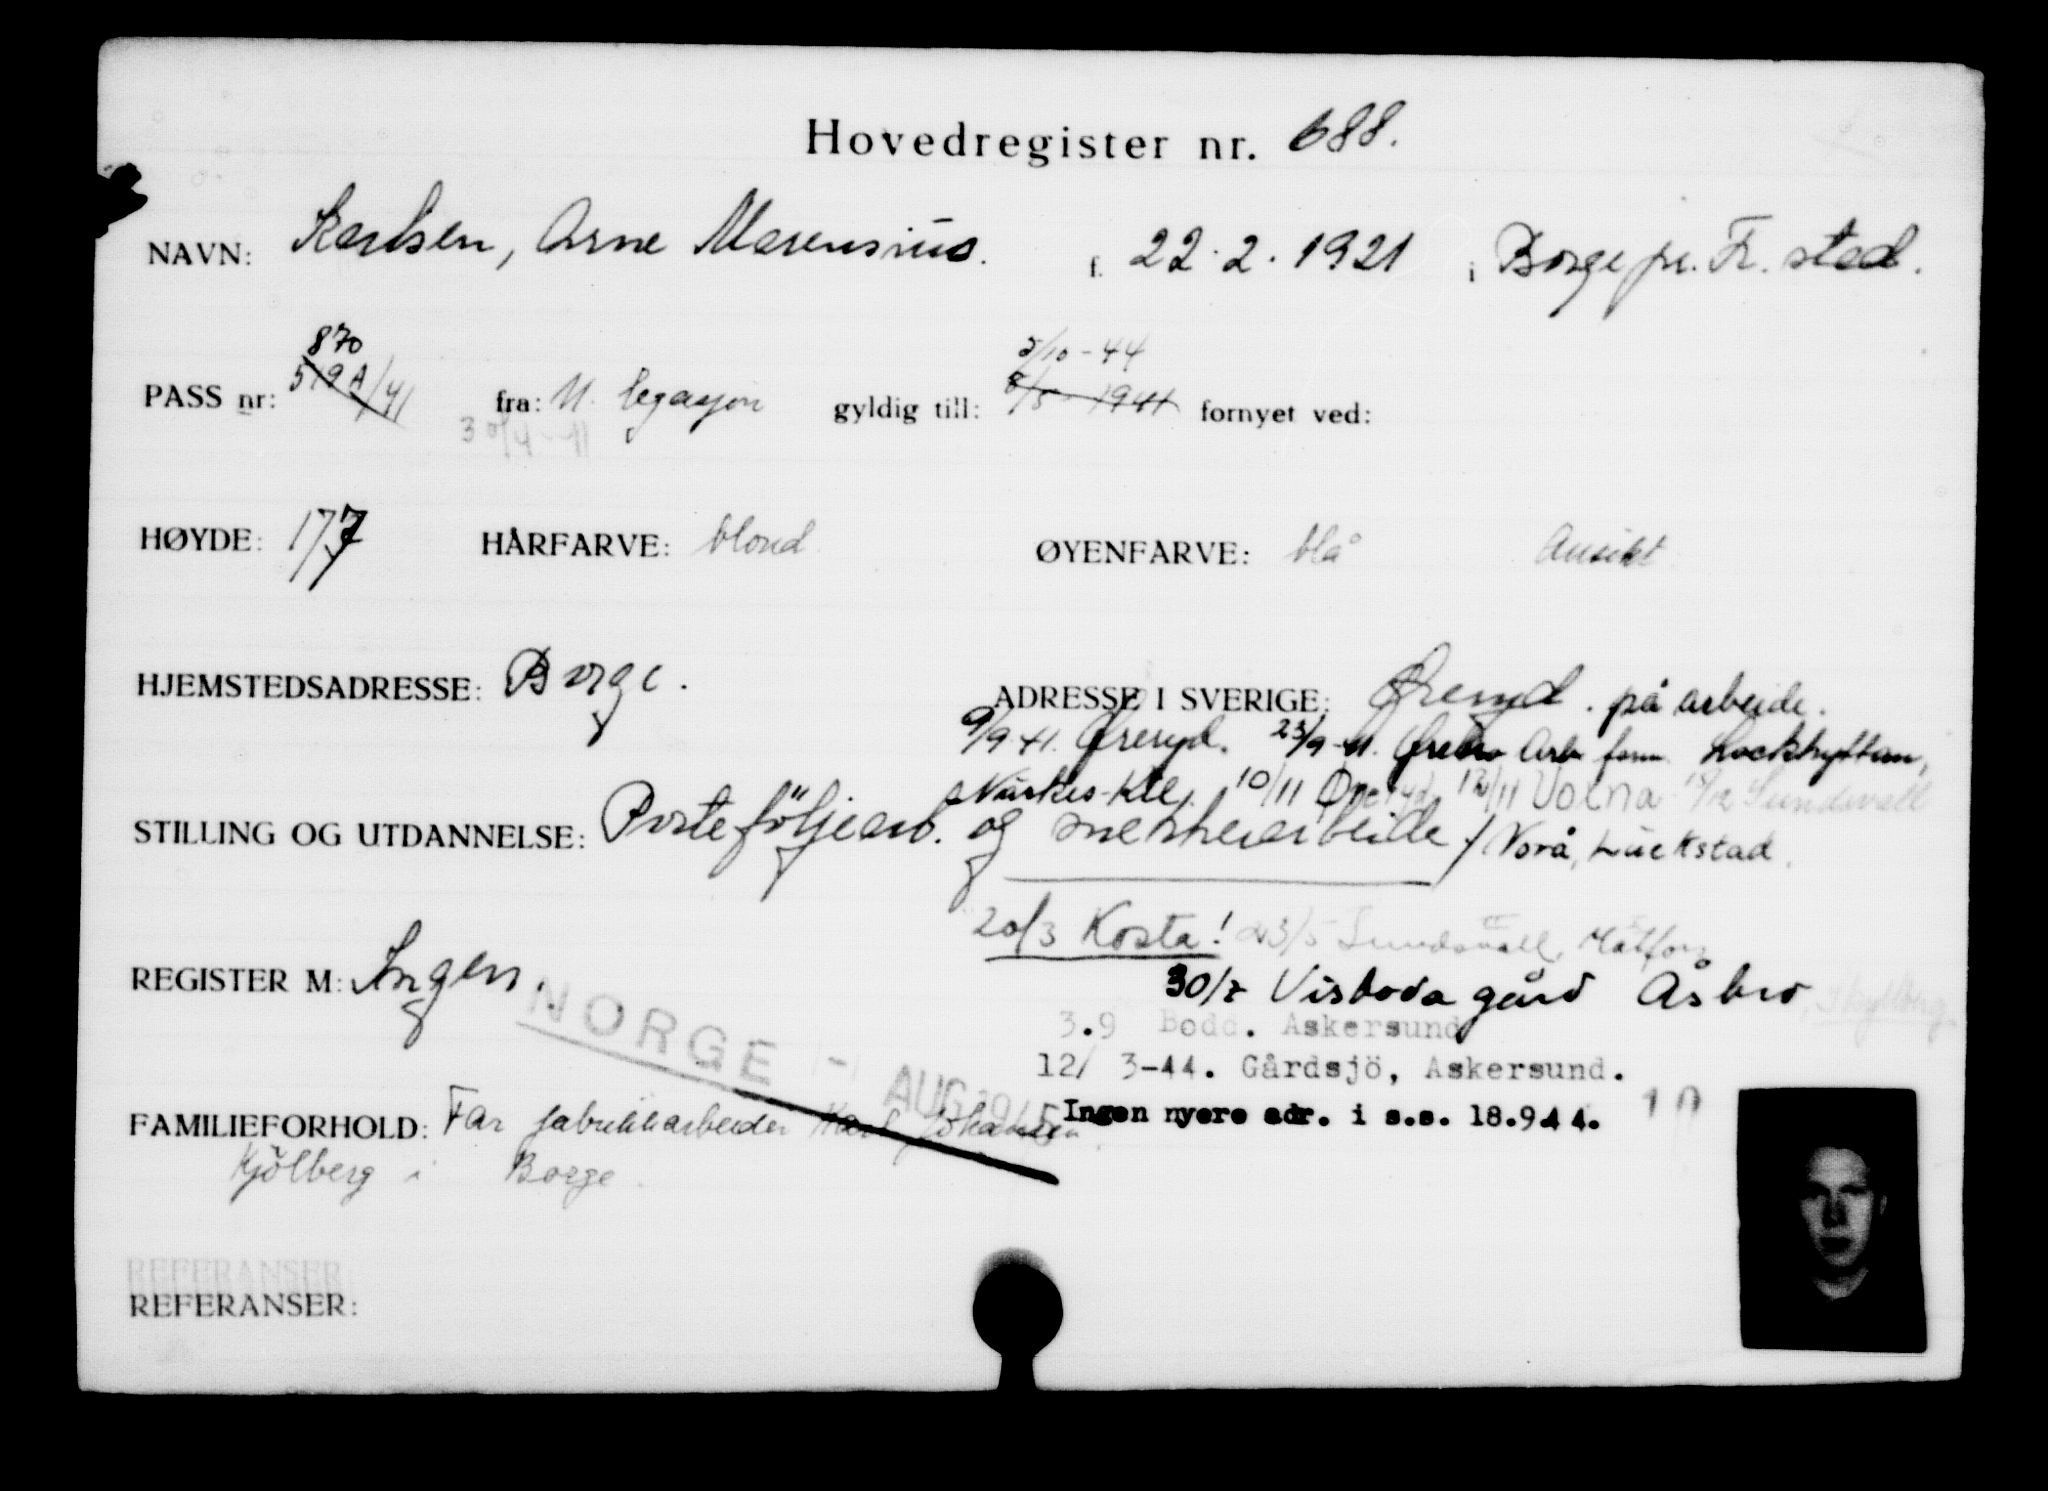 Hovedregister nr. 688.
NAVN: Karlsen, Arne Marensius. f. 22.2.1921 i Borge pr. Fr. stad.
870
PASS nr: 519 A/41 fra: N. legasjon gyldig till: 8/5 1941 fornyet ved:
5/10-44
30/4-41
HØYDE: 177 HÅRFARVE: blond ØYENFARVE: blå Ansikt
HJEMSTEDSADRESSE: Borge. ADRESSE I SVERIGE: Øreryd. på arbeide.
9/9 41. Øreryd. 23/9-41. Ørebro Arb. Lockhyttan,
10/11 Øreryd 12/11 Voxna Sundsvall
STILLING OG UTDANNELSE: Porteföljearb. og snekkerarbeide / Norå,
20/3 Kosta! 23/5 Sundsvall, Matfors
REGISTER M: Ingen.
30/7 Visboda gård Åsbro,
NORGE 1- AUG 1945
3.9 Bodd. Askersund
12/ 3-44. Gårdsjö, Askersund.
FAMILIEFORHOLD: Far fabrikkarbeider Karl Johansen.
Ingen nyere adr. i s.s. 18.9.44.
Kjölberg i Borge.
REFERANSER
REFERANSER: